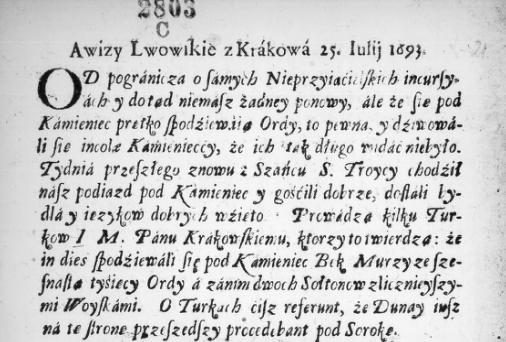 2803
C
Awizy Lwowſkie z Krákowá 25. Iulij 1693.
OD pogránicza o ſamych Nieprzyiaćielſkich incurſy-
ách y dotąd niemasz żadney ponowy, ále że ſię pod
Kámieniec prętko ſpodźiewáią Ordy, to pewna, y dźiwowá-
li ſię incolæ Kámienieccy, że ich ták długo widáć niebyło.
Tydniá przeszłego znowu z Szańcu S. Troycy chodźił
nász podiazd pod Kámieniec y gośćili dobrze, doſtáli by-
dlá y ięzykow dobrych wźięto. Prowádzą kilku Tur-
kow I M. Pánu Krákowſkiemu, ktorzy to twierdzą: że
in dies ſpodźiewáli ſię pod Kámieniec Murzy ze sze-
ſnaſtą tyśięcy Ordy á zá nim dwoch Sołtonow z licznieyszy-
mi Woyſkámi. O Turkách ćiż referunt, że Dunay iusz
ná tę ſtronę przeszedszy procedebant pod Sorokę.